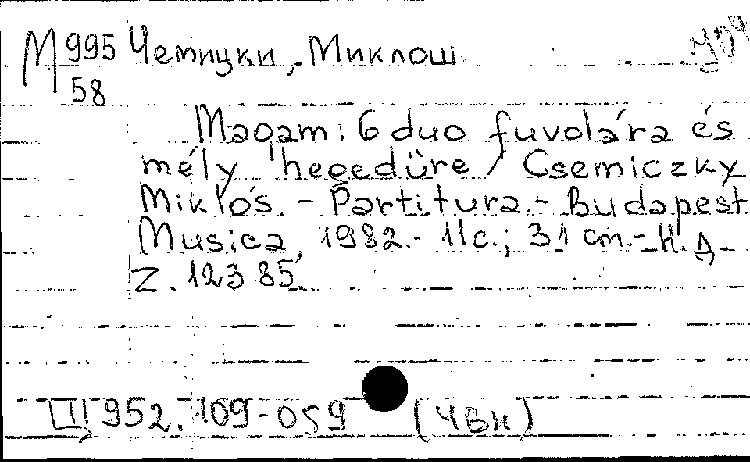 М 995 Чемицки, Миклош
58
Magam: 6 duo fuvolára és
mély hegedüre / Csemiczky
Miklós. - Partitura. - Budapest
Musica, 1982. - 11 c.; 31 cm. - Н. Д
Z. 12385
Ш 952. 109-059 (ЧВН)